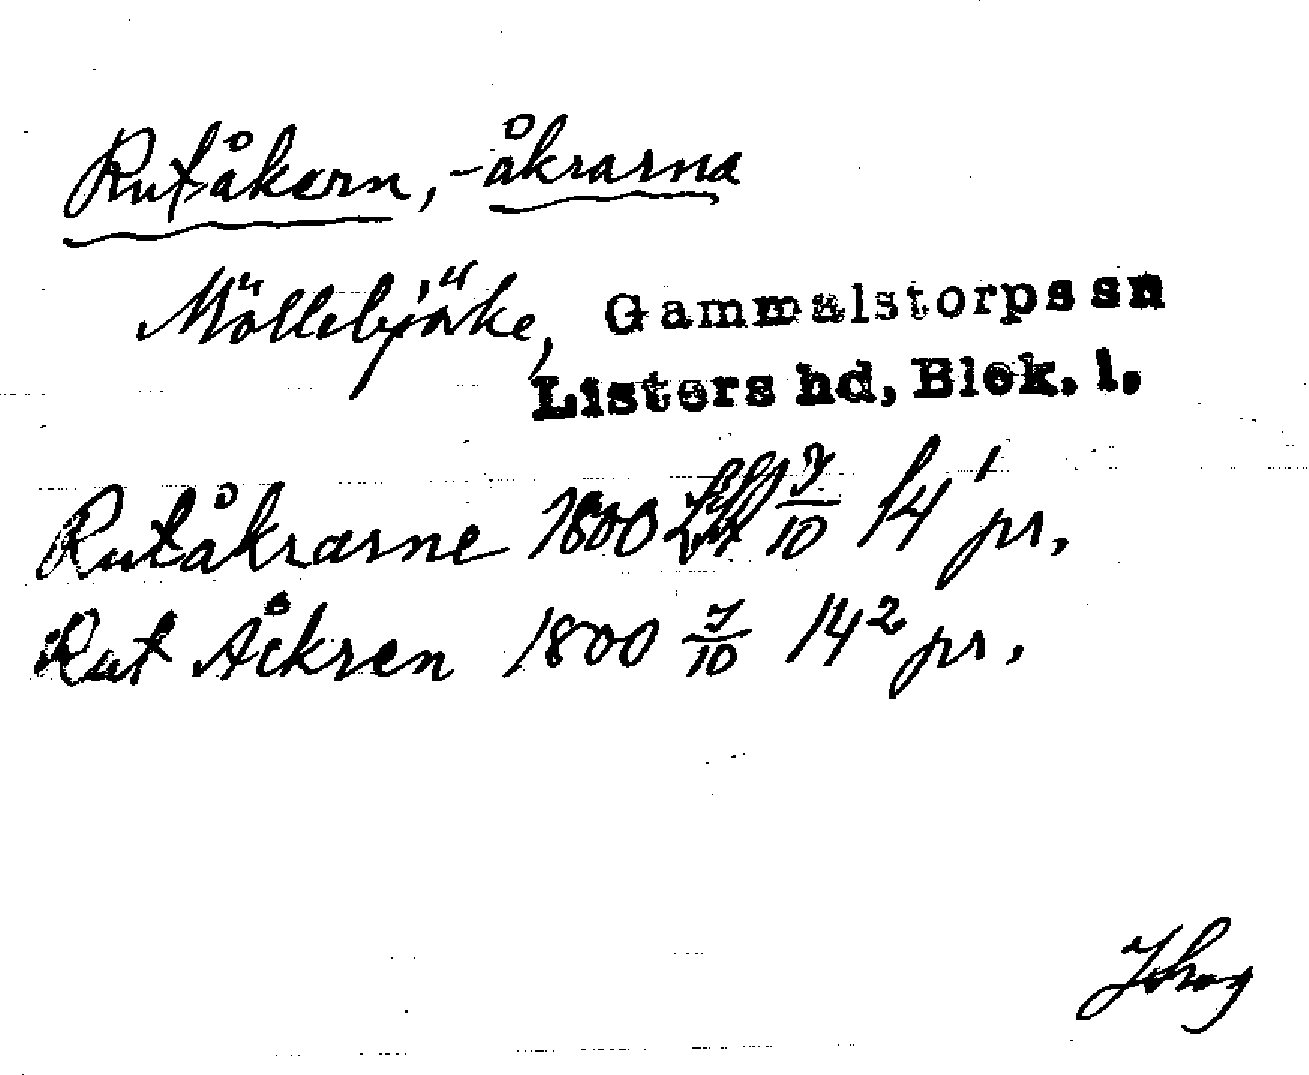 Rutåkern, -åkrarna
Möllebjörke, Gammalstorps sn
Listers hd, Blek. l.
Rutåkrarne 1800 7/10 14¹ pr.
Rut Åckren 1800 7/10 14² pr.